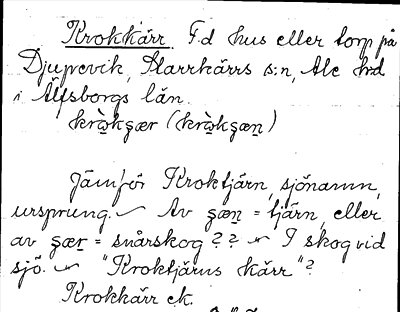 Krokkärr F.d hus eller torp på
Djupevik, Starrkärrs s:n, Ale hd
i Älfsborgs län.
krò̱kʂær (krò̱kʂæn)
Jämför Kroktjärn, sjönamn,
ursprung. ~ Av ʂæn = tjärn, eller
av ʂær = snårskog ?? ~ I skog vid
sjö. ~ "Kroktjärns kärr"?
Krokkärr ek.